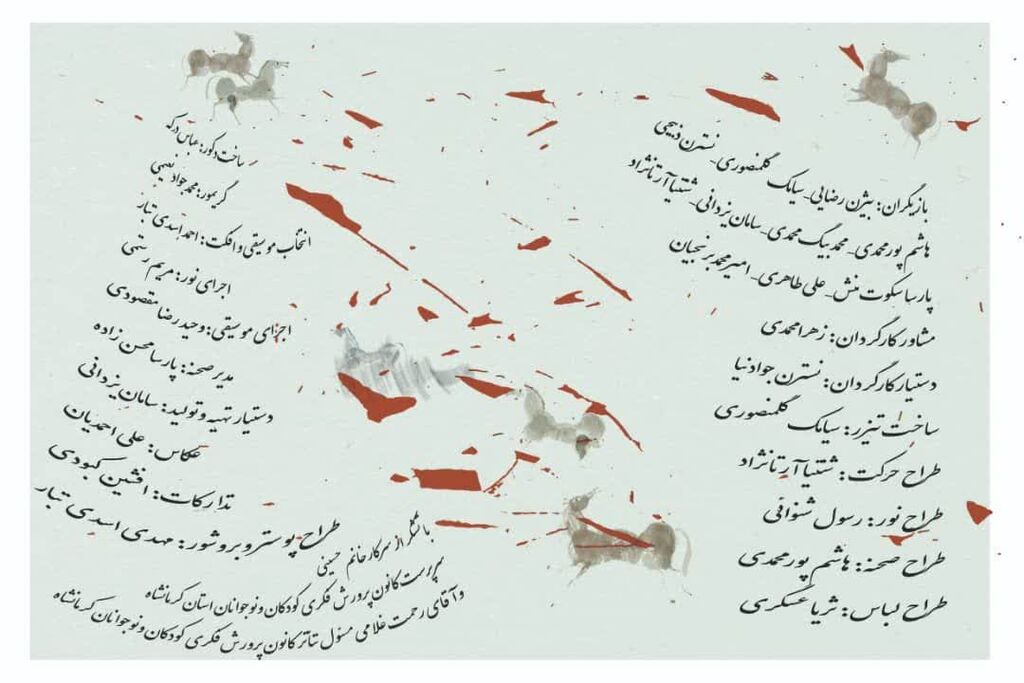 بازیگران: بیژن رضایی - سیامک گلمنصوری - نسترن ذبیحی
هاشم پورمحمدی - محمدبیگ محمدی - سامان یزدانی - شتنیا آرتانژاد
پارسا سکوت منش - علی طاهری - امیرمحمد برنجیان
مشاور کارگردان: زهرا محمدی
دستیار کارگردان: نسترن جوادنیا
ساخت تیزر: سیامک گلمنصوری
طراح حرکت: شتنیا آرتانژاد
طراح نور: رسول شنوائی
طراح صحنه: هاشم پورمحمدی
طراح لباس: ثریا عسکری
ساخت دکور: عباس درکه
گریمور: محمدجواد نعیمی
انتخاب موسیقی و افکت: احمد اسدی تبار
اجرای نور: مریم رستمی
اجرای موسیقی: وحیدرضا مقصودی
مدیر صحنه: پارسا محسن زاده
دستیار تهیه و تولید: سامان یزدانی
عکاس: علی احمدیان
تدارکات: افشین کبودی
طراح پوستر و بروشور: مهدی اسدی تبار
با تشکر از سرکار خانم حسینی
سرپرست کانون پرورش فکری کودکان و نوجوانان استان کرمانشاه
و آقای رحمت غلامی مسئول تئاتر کانون پرورش فکری کودکان و نوجوانان کرمانشاه